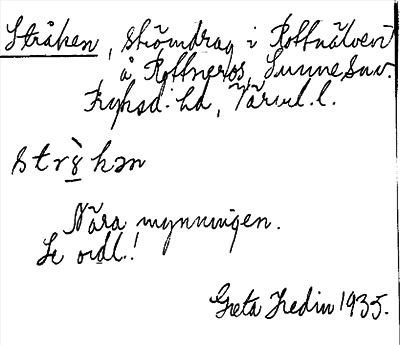 Stråken, strömdrag i Rottnälven
å Rottneros, Sunne sn.
Fryksd. hd, Värml. l.
strὸ̱kən
Nära mynningen.
Se ordl.!
Greta Hedin 1935.